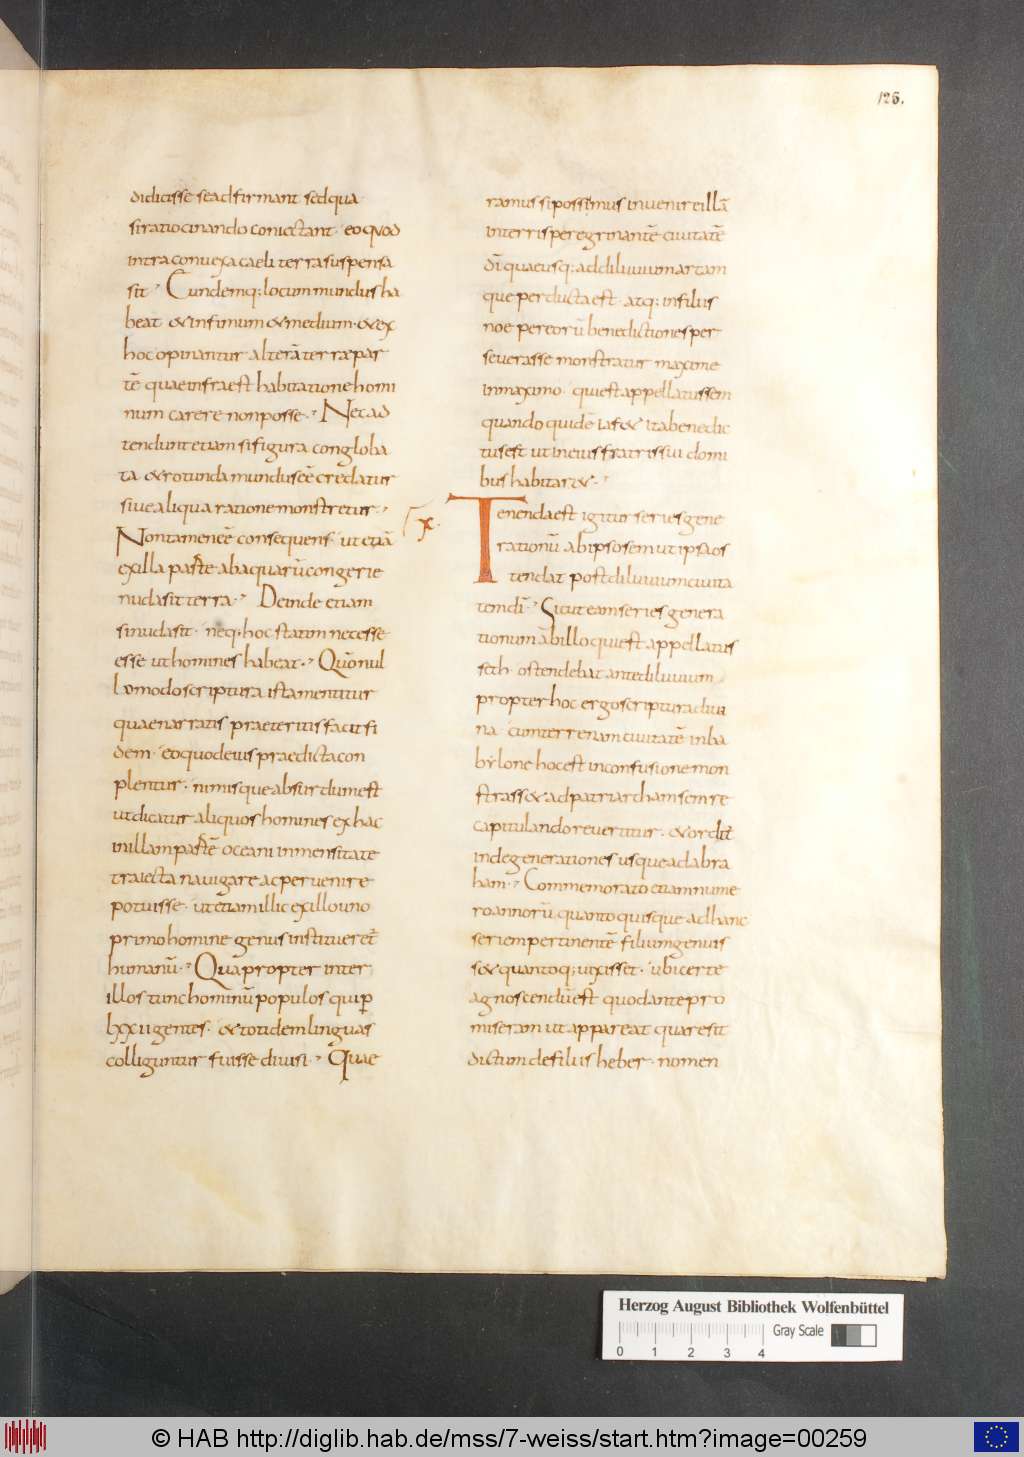 126.
didicisse se adfirmant sed qua
si ratiocinando coniectant· eo quod
intra conuexa caeli terra suspensa
sit· Cundemq; locum mundus ha
beat· & infimum & medium· & ex
hoc opinantur alterā terrae par
tē quae infra est habitatione homi
num carere non posse· Nec ad
tendunt etiam si figura congloba
ta & rotunda mundus eē credatur
siue aliqua ratione monstretur·
Non tamen eē consequens· ut etiā
ex illa parte ab aquarū congerie
nuda sit terra· Deinde etiam
si nuda sit· neq; hoc statim necesse
esse ut homines habeat· Quōnul
lo modo scriptura ista mentitur
quae narratis praeteritis facit fi
dem· eo quod eius praedicta con
plentur· nimisque absurdum est
ut dicatur aliquos homines ex hac
in illam partē oceani inmensitate
traiecta nauigare ac peruenire
potuisse· ut etiam illic ex illo uno
primo homine genus institueret̄
humanū· Quapropter inter
illos tunc hominū populos qui p̄
lxxii gentes· & totidem linguas
colliguntur fuisse diuisi· Quae
ramus si possemus inuenire illā
in terris peregrinantē ciuitatē
dī quae usq; ad diluuium arcam
que perducta est· atq; in filiis
noe per eorū benedictiones per
seuerasse monstratur maxime
in maximo· qui est appellatus sem
quando quidē iafeth ita benedic
tus est ut in eius fratris sui domi
bus habitar&·
x·
Tenenda est igitur series gene
rationū ab ipso sem ut ipsa os
tendat post diluuium ciuita
tem dī· Sicut eam series genera
tionum ab illo qui est appellatus
seth· ostendebat ante diluuium
propter hoc ergo scriptura diui
na· cum terrenam ciuitatē in ba
bylone hoc est in confusione mon
strass& ad patriarcham sem re
capitulando reuertitur· & ordit̄
inde generationes usque ad abra
ham· Commemorato etiam nume
ro annorū quanto quisque ad hanc
seriem pertinentē filium genuis
s& quantoq; uixisset· ubi certe
agnoscendū est quod ante pro
miseram ut appareat quare sit
dictum de filiis heber· nomen
Herzog August Bibliothek Wolfenbüttel
Gray Scale
0 1 2 3 4
© HAB http://diglib.hab.de/mss/7-weiss/start.htm?image=00259